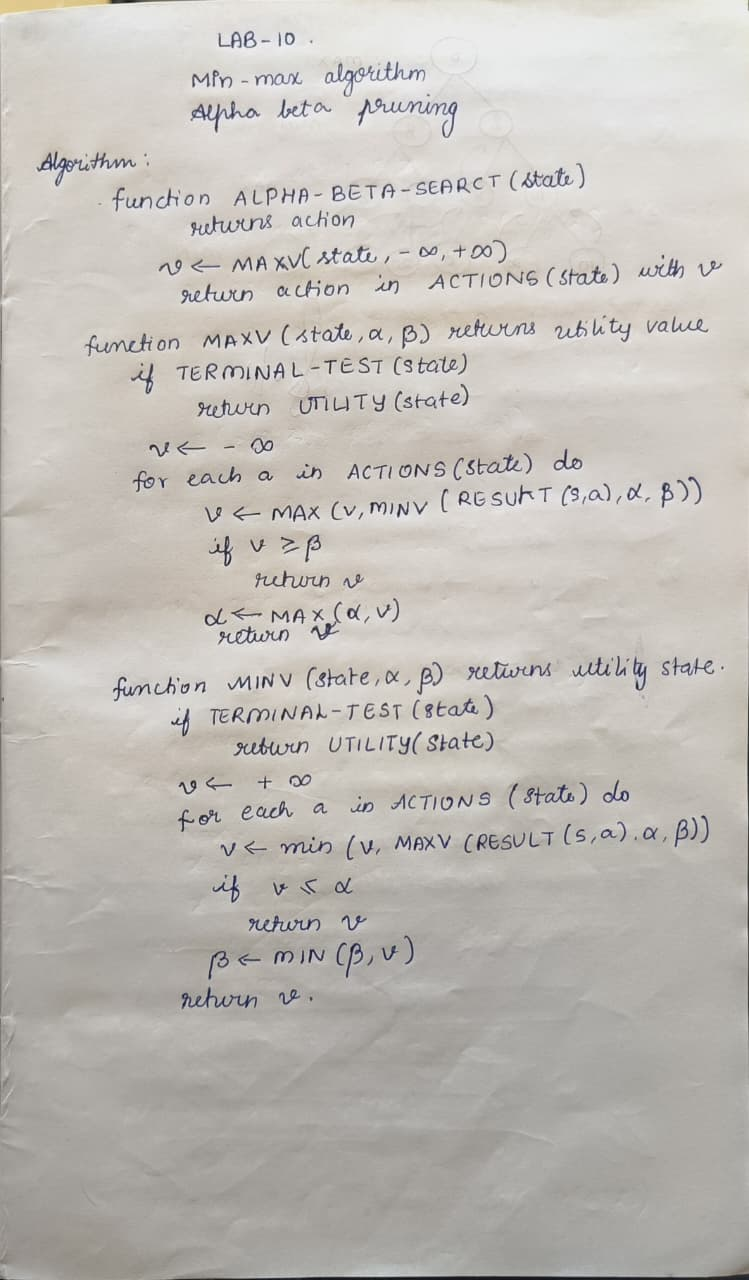 LAB-10.
Min-max algorithm
Alpha beta pruning
Algorithm:
function ALPHA-BETA-SEARCT (state)
returns action
v ← MAXV( state, -∞, +∞)
return action in ACTIONS (state) with v
function MAXV (state, α, β) returns utility value
if TERMINAL-TEST (state)
return UTILITY (state)
v ← - ∞
for each a in ACTIONS (state) do
v ← MAX (v, MINV (RESULT (s,a), α, β))
if v ≥ β
return v
α ← MAX (α, v)
return v
function MINV (state, α, β) returns utility state.
if TERMINAL-TEST (state)
return UTILITY( state)
v ← + ∞
for each a in ACTIONS (state) do
v ← min (v, MAXV (RESULT (s,a). α, β))
if v ≤ α
return v
β ← MIN (β, v)
return v.